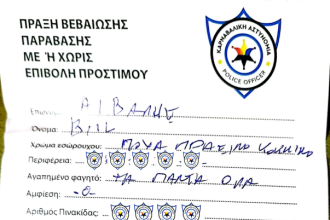 ΠΡΑΞΗ ΒΕΒΑΙΩΣΗΣ
ΠΑΡΑΒΑΣΗΣ
ΜΕ Ή ΧΩΡΙΣ
ΕΠΙΒΟΛΗ ΠΡΟΣΤΙΜΟΥ
ΚΑΡΝΑΒΑΛΙΚΗ ΑΣΤΥΝΟΜΙΑ
POLICE OFFICER
Όνομα:
Χρώμα εσώρουχου: ΠΡΑΣΙΝΟ ΚΟΚΚΙΝΟ
Περιφέρεια:
Αγαπημένο φαγητό: ΤΑ ΠΑΝΤΑ ΟΛΑ
Αμφίεση: -0-
Αριθμός Πινακίδας: